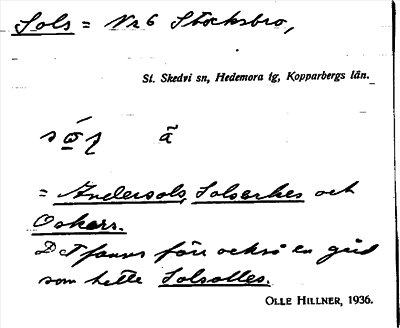 Sols = Nr 6 Stocksbro,
St. Skedvi sn, Hedemora tg, Kopparbergs län.
ã
= Andersols, Solserkes och
Oskars.
Det fanns förr också en gård
som hette Solsolles.
OLLE HILLNER, 1936.